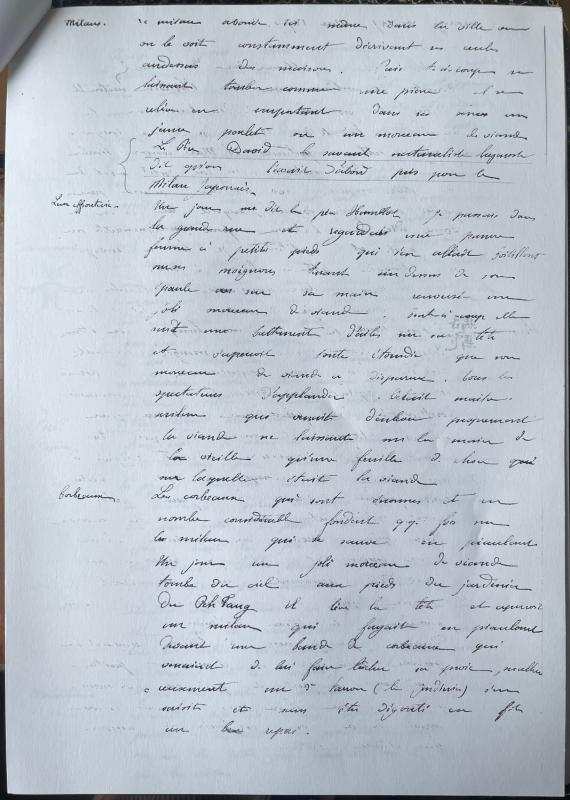 Milans. Le milan abonde ici même dans la ville où
on le voit constamment décrivant ses cercles
au dessus des maisons. Puis tout à coup se
laissant tomber comme une pierre et se
relève en emportant dans ses serres un
jeune poulet ou un morceau de viande
Le Père David le savant naturaliste lazariste
dit qu'on l'avait d'abord pris pour le
Milan Japonais.
Leur effronterie. Un jour me dit le père Humblot, je passais dans
la grande rue et regardais une pauvre
femme à petits pieds qui s'en allait sautillant
tenant au dessus de son
épaule sur sa main renversée un
joli morceau de viande. tout-à-coup elle
sent un battement d'ailes sur sa tête
et s'aperçoit toute étourdie que son
morceau de viande a disparu. tous les
spectateurs d'applaudir. C'était maître
milan qui venait d'enlever proprement
la viande ne laissant sur la main de
la vieille qu'une feuille de chou
sur laquelle était la viande
Corbeaux. Les corbeaux qui sont énormes et en
nombre considérable fondent q.q. fois sur
les milans qui se sauvent en piaulant
Un jour un joli morceau de viande
tombe du ciel aux pieds du jardinier
du Peh Tang il lève la tête et aperçoit
un milan qui fuyait en piaulant
devant une bande de corbeaux qui
venaient de lui faire lâcher sa proie, malheu
reusement (le jardinier) s'en
saisit et sans être dégoûté en fit
un repas.